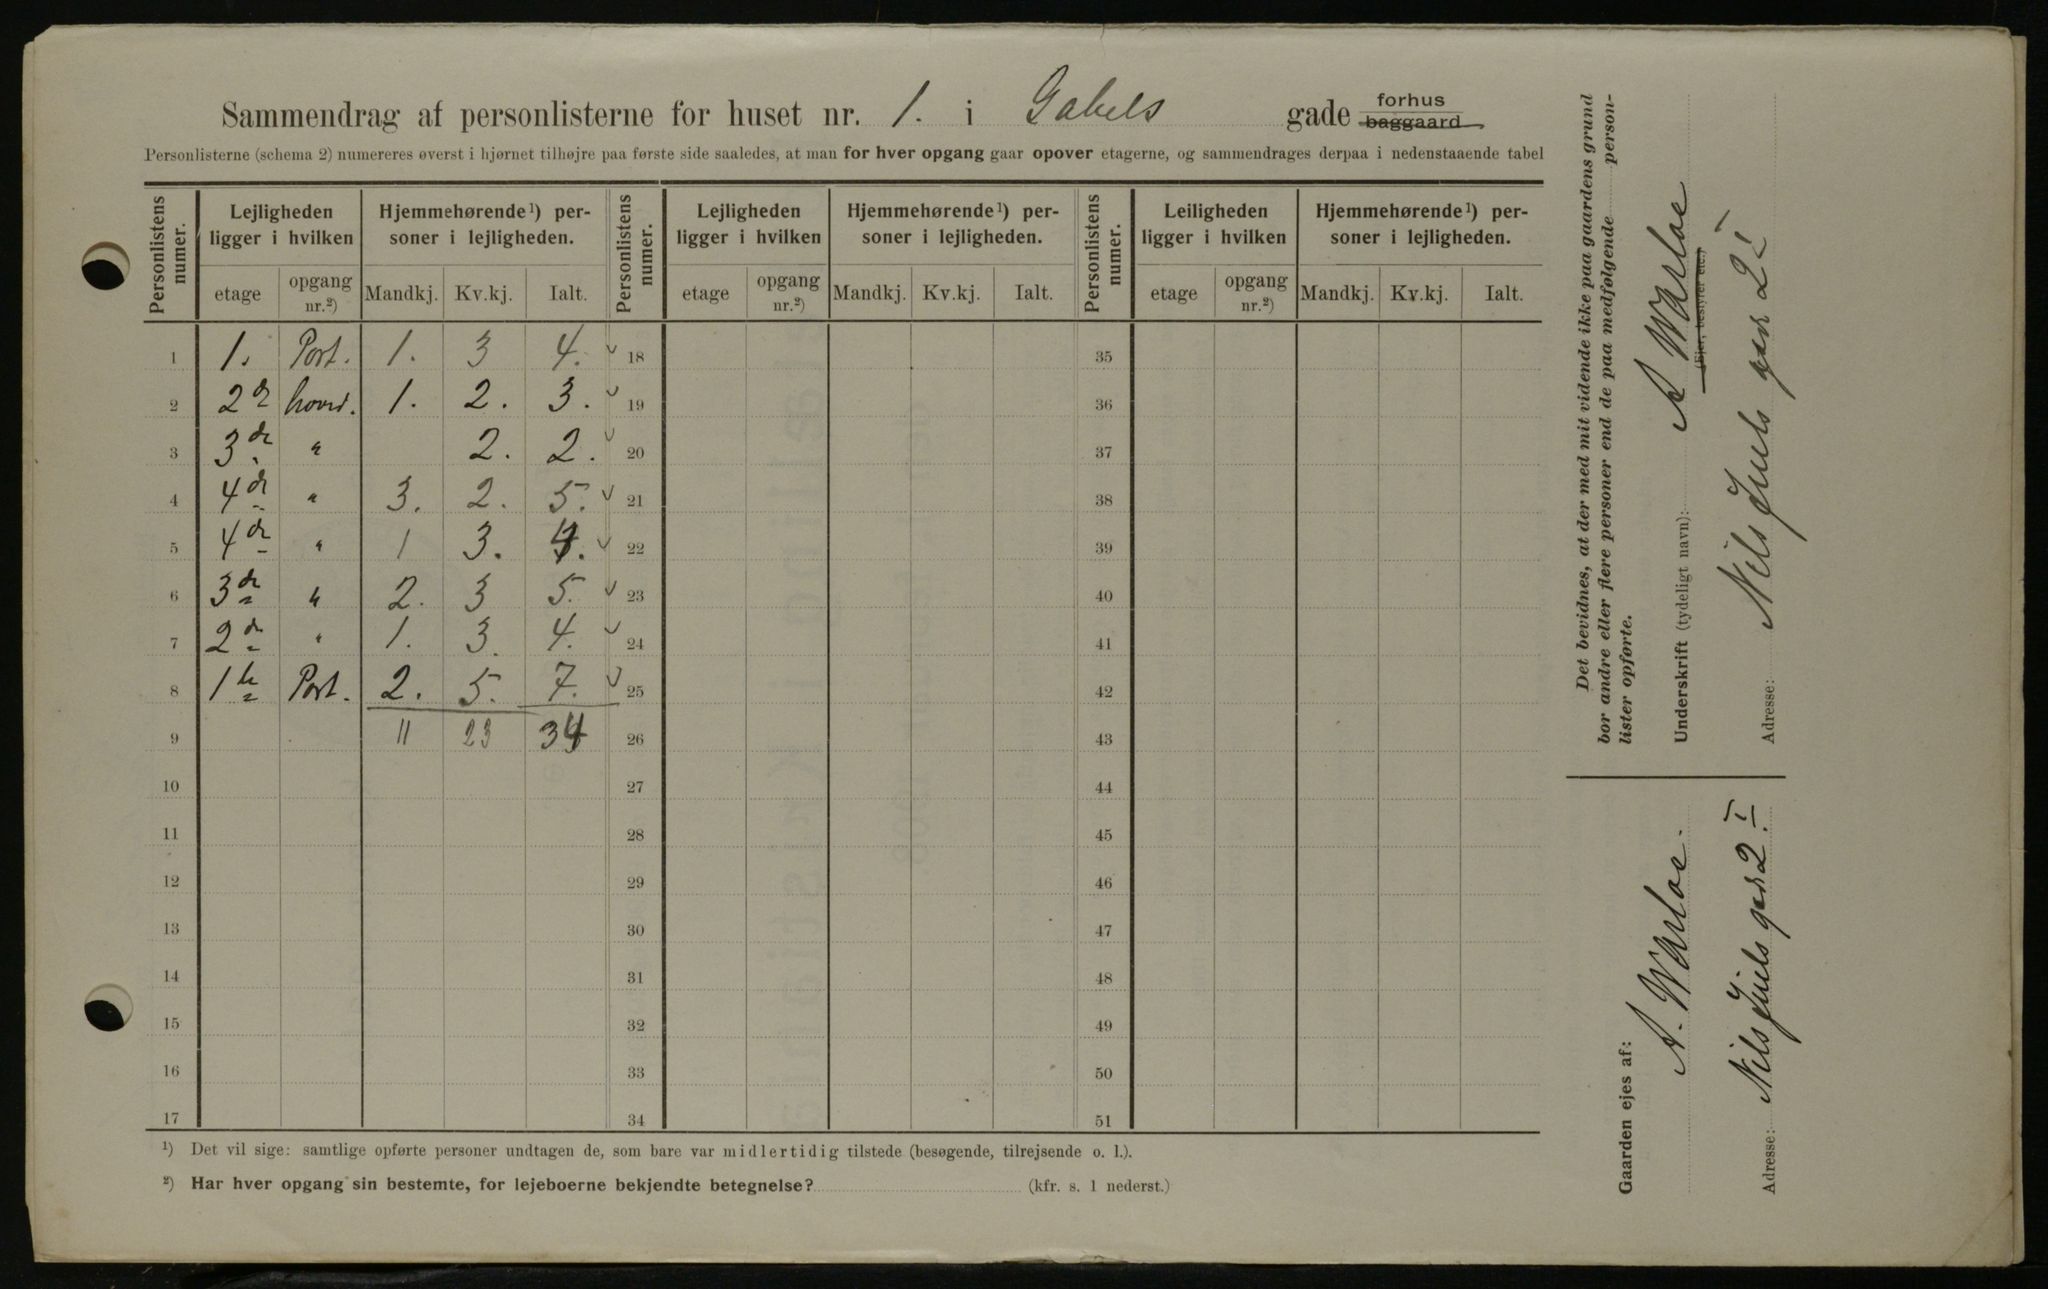 Sammendrag af personlisterne for huset nr. 1. i Gabels gade forhus
baggaard
Personlisterne (schema 2) numereres øverst i hjørnet tilhøjre paa første side saaledes, at man for hver opgang gaar opover etagerne, og sammendrages derpaa i nedenstaaende tabel
Personlistens numer. Lejligheden ligger i hvilken Hjemmehørende¹) personer i lejligheden. Personlistens numer. Lejligheden ligger i hvilken Hjemmehørende¹) personer i lejligheden. Personlistens numer. Leiligheden ligger i hvilken Hjemmehørende¹) personer i lejligheden.
etage opgang nr.²) Mandkj. Kv.kj. Ialt. etage opgang nr.²) Mandkj. Kv.kj. Ialt. etage opgang nr.²) Mandkj. Kv.kj. Ialt.
1 1. Port. 1. 3 4. 18 35
2 2 1. 2. 3. 19 36
3 3de " 2. 2. 20 37
4 4de " 3. 2. 5. 21 38
5 4de " 1 3. 4. 22 39
6 3de " 2. 3 5. 23 40
7 2de " 1. 3. 4. 24 41
8 1te Port. 2. 5. 7. 25 42
9 11 23 34 26 43
10 27 44
11 28 45
12 29 46
13 30 47
14 31 48
15 32 49
16 33 50
17 34 51
¹) Det vil sige: samtlige opførte personer undtagen de, som bare var midlertidig tilstede (besøgende, tilrejsende o. l.).
²) Har hver opgang sin bestemte, for lejeboerne bekjendte betegnelse? (kfr. s. 1 nederst.)
Det bevidnes, at der med mit vidende ikke paa gaardens grund
bor andre eller flere personer end de paa medfølgende person-
lister opførte.
Underskrift (tydeligt navn): A Warloe
(Ejer, bestyrer etc.)
Adresse: Nils Juels gad 2 I
Gaarden ejes af:
A. Warloe.
Adresse: Nils Juels gad 2. I